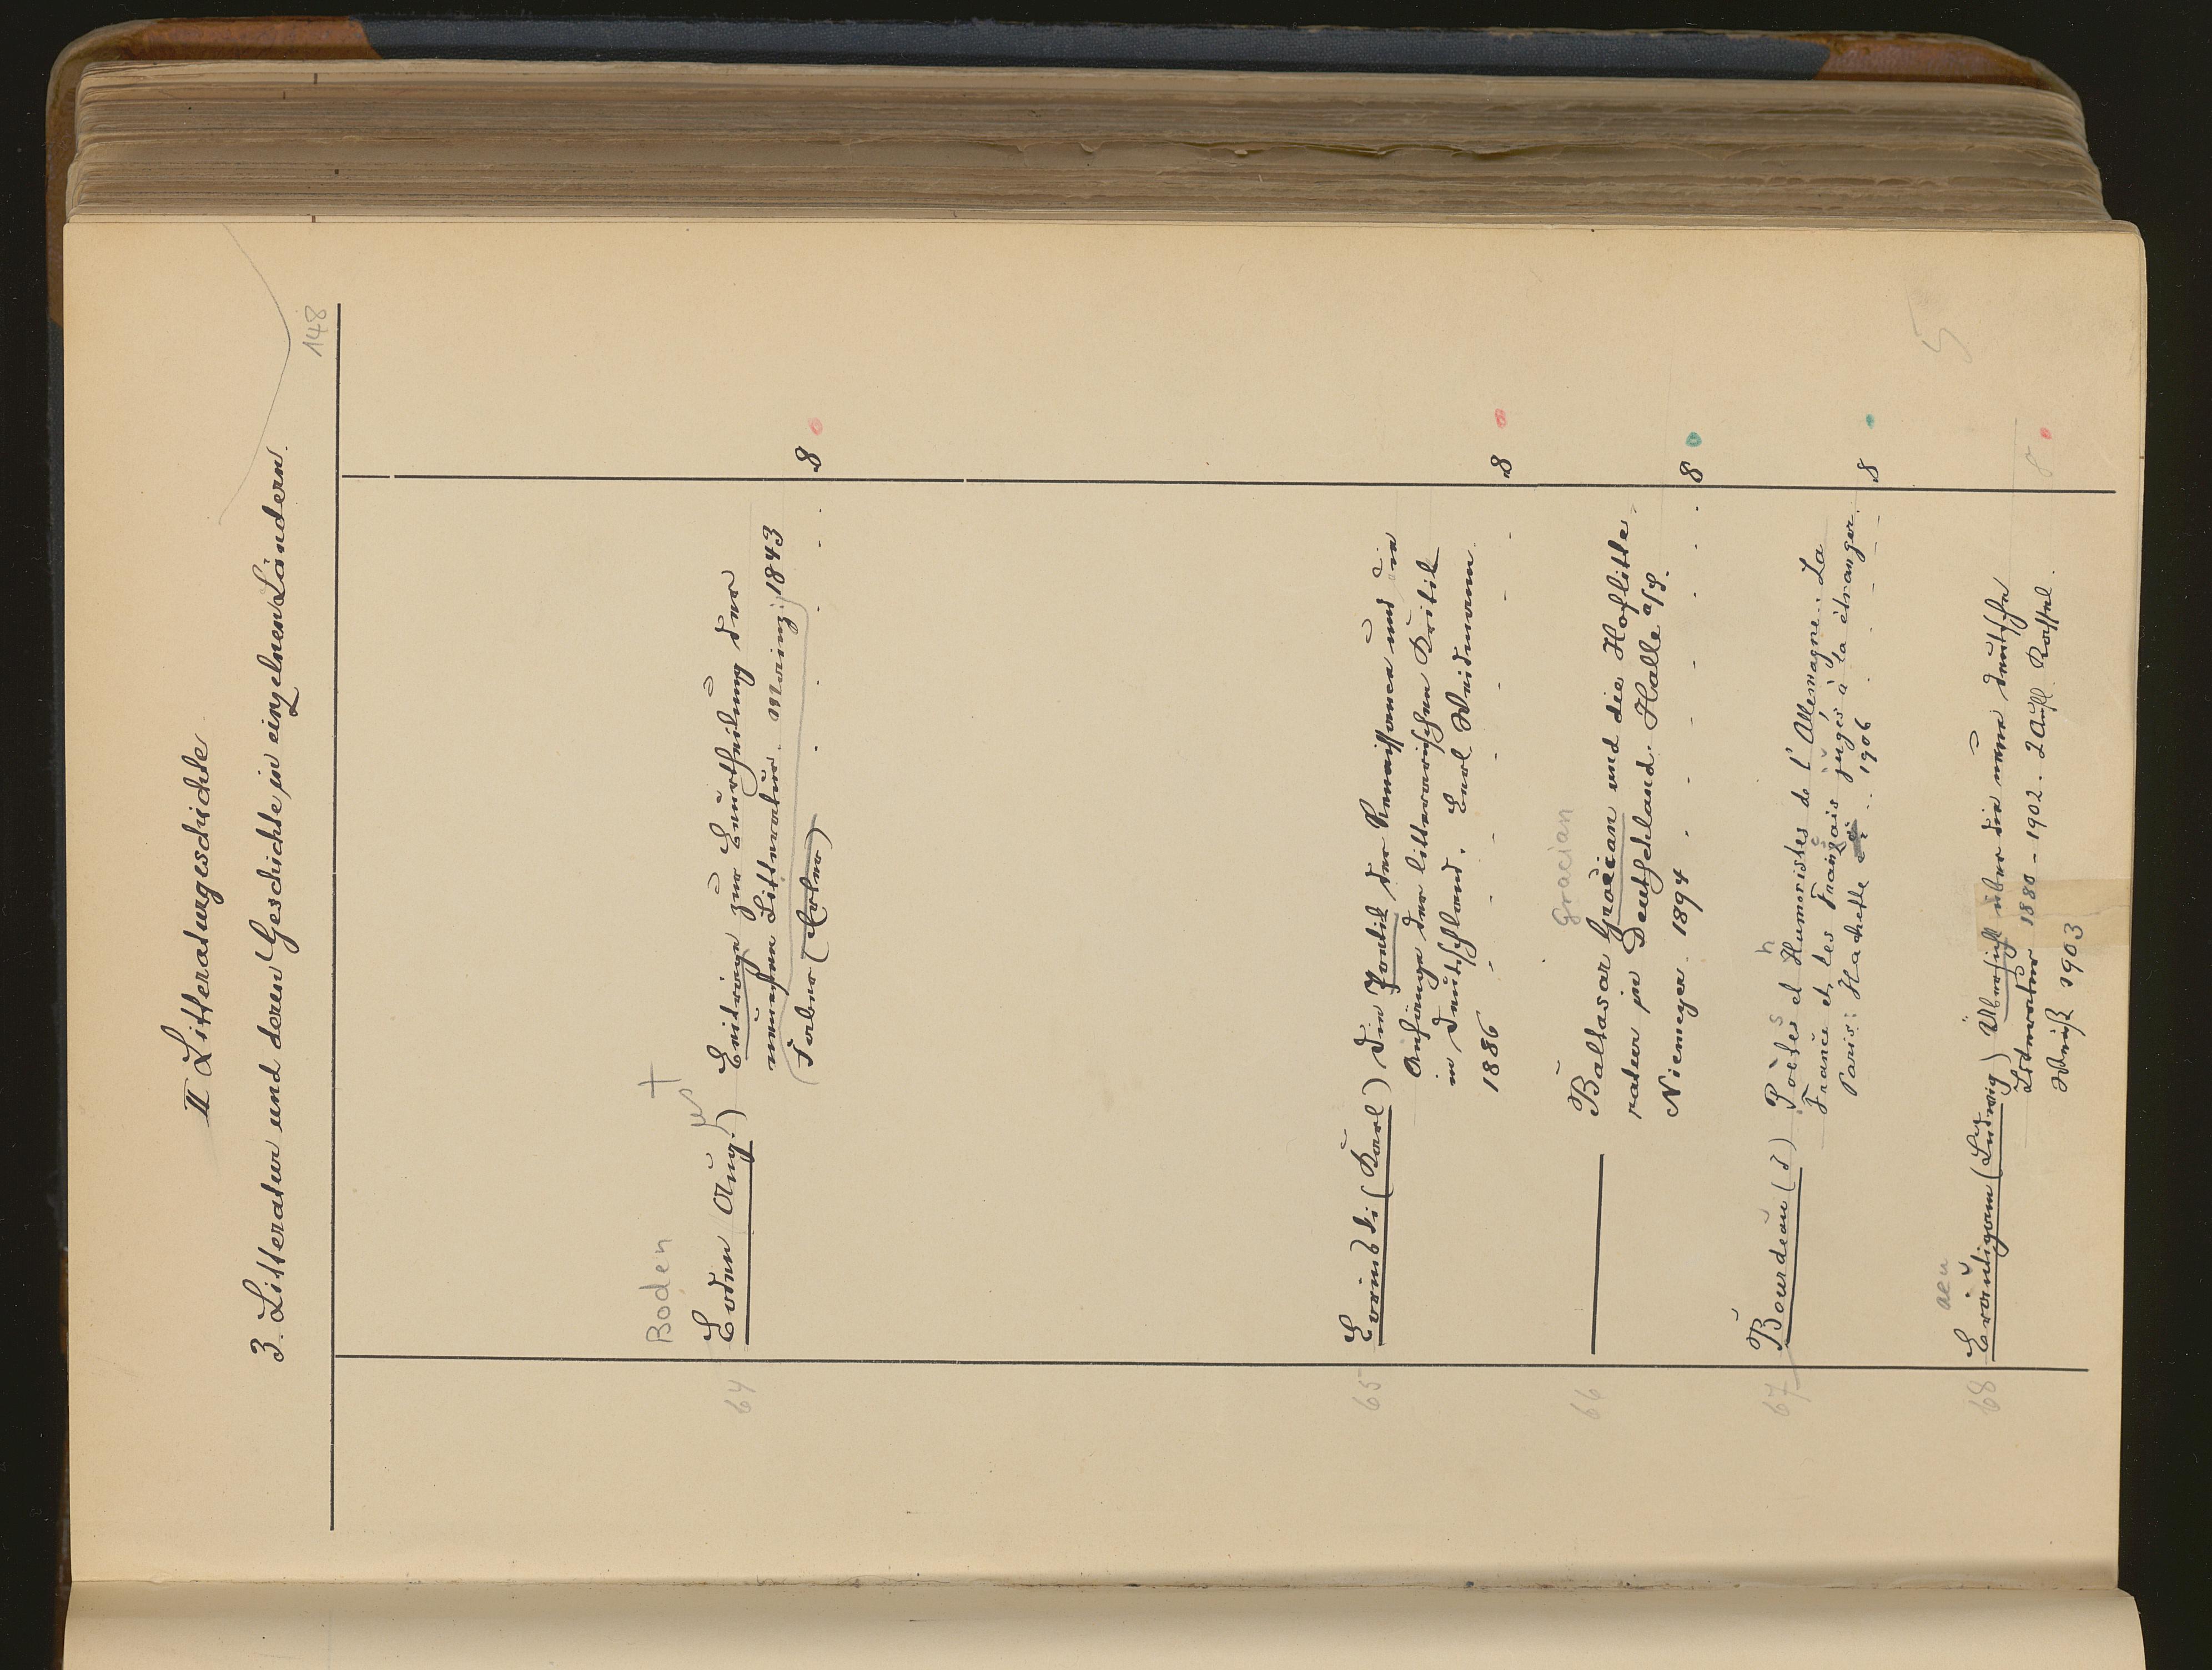 II Litteraturgeschichte
3. Litteratur und deren Geschichte in einzelnen Ländern.
148
Boden +
64 Boden Aug.) Beiträge zur Beurtheilung der
ust
neuesten Litteratur. Mainz, 1843
(Faber) 8
65 Borinski (Karl) Die Poetik der Renaissance und die
Anfänge der litterarischen Kritik
in Deutschland. Berl Weidmann
1886 8
Gracian
66 — Baltasar Gracian und die Hoflitte-
ratur in Deutschland. Halle a/S.
Niemeyer. 1894 8
h
67 Bourdeau (J) Poètes et Humoristes de l'Allemagne. La
s
France et les Français jugés à la étranger.
Paris: Hachette 1906 8
aeu
68 Bräutigam (Ludwig) Übersicht über die neuere deutsche
Litteratur 1880 - 1902. 2 Aufl. Kassel.
Weiß 1903 8
5